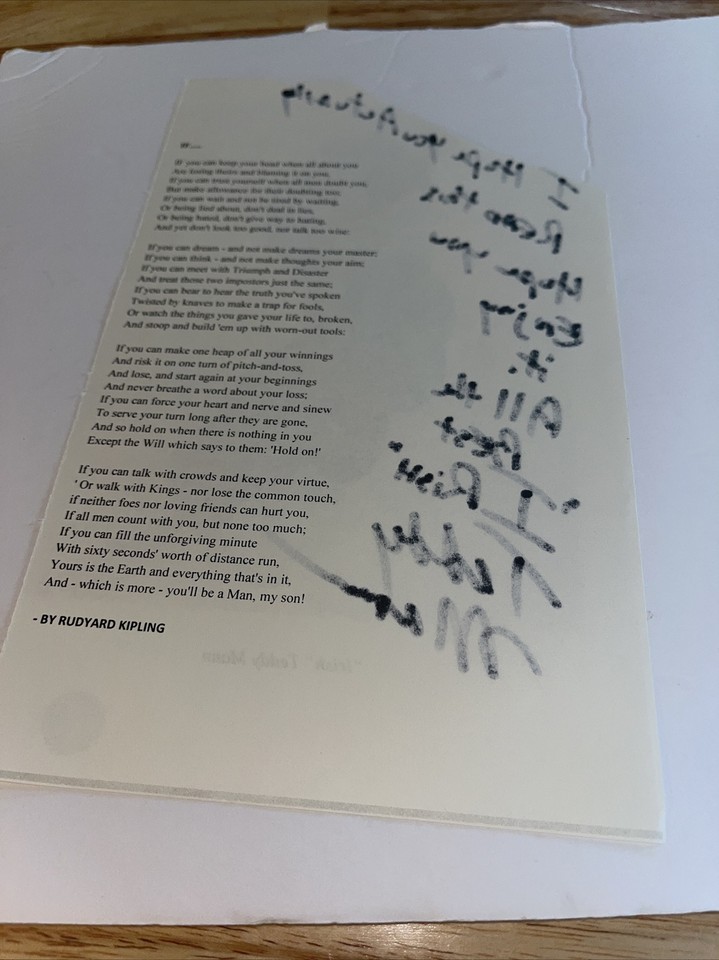 IF....
If you can keep your head when all about you
Are losing theirs and blaming it on you,
If you can trust yourself when all men doubt you,
But make allowance for their doubting too;
If you can wait and not be tired by waiting,
Or being lied about, don't deal in lies,
Or being hated, don't give way to hating,
And yet don't look too good, nor talk too wise:
If you can dream - and not make dreams your master;
If you can think - and not make thoughts your aim;
If you can meet with Triumph and Disaster
And treat those two impostors just the same;
If you can bear to hear the truth you've spoken
Twisted by knaves to make a trap for fools,
Or watch the things you gave your life to, broken,
And stoop and build 'em up with worn-out tools:
If you can make one heap of all your winnings
And risk it on one turn of pitch-and-toss,
And lose, and start again at your beginnings
And never breathe a word about your loss;
If you can force your heart and nerve and sinew
To serve your turn long after they are gone,
And so hold on when there is nothing in you
Except the Will which says to them: 'Hold on!'
If you can talk with crowds and keep your virtue,
' Or walk with Kings - nor lose the common touch,
if neither foes nor loving friends can hurt you,
If all men count with you, but none too much;
If you can fill the unforgiving minute
With sixty seconds' worth of distance run,
Yours is the Earth and everything that's in it,
And - which is more - you'll be a Man, my son!
- BY RUDYARD KIPLING
"Irish" Teddy Mann
I Hope you Actually
Read this
Hope you
Enjoy
it.
All the
Best